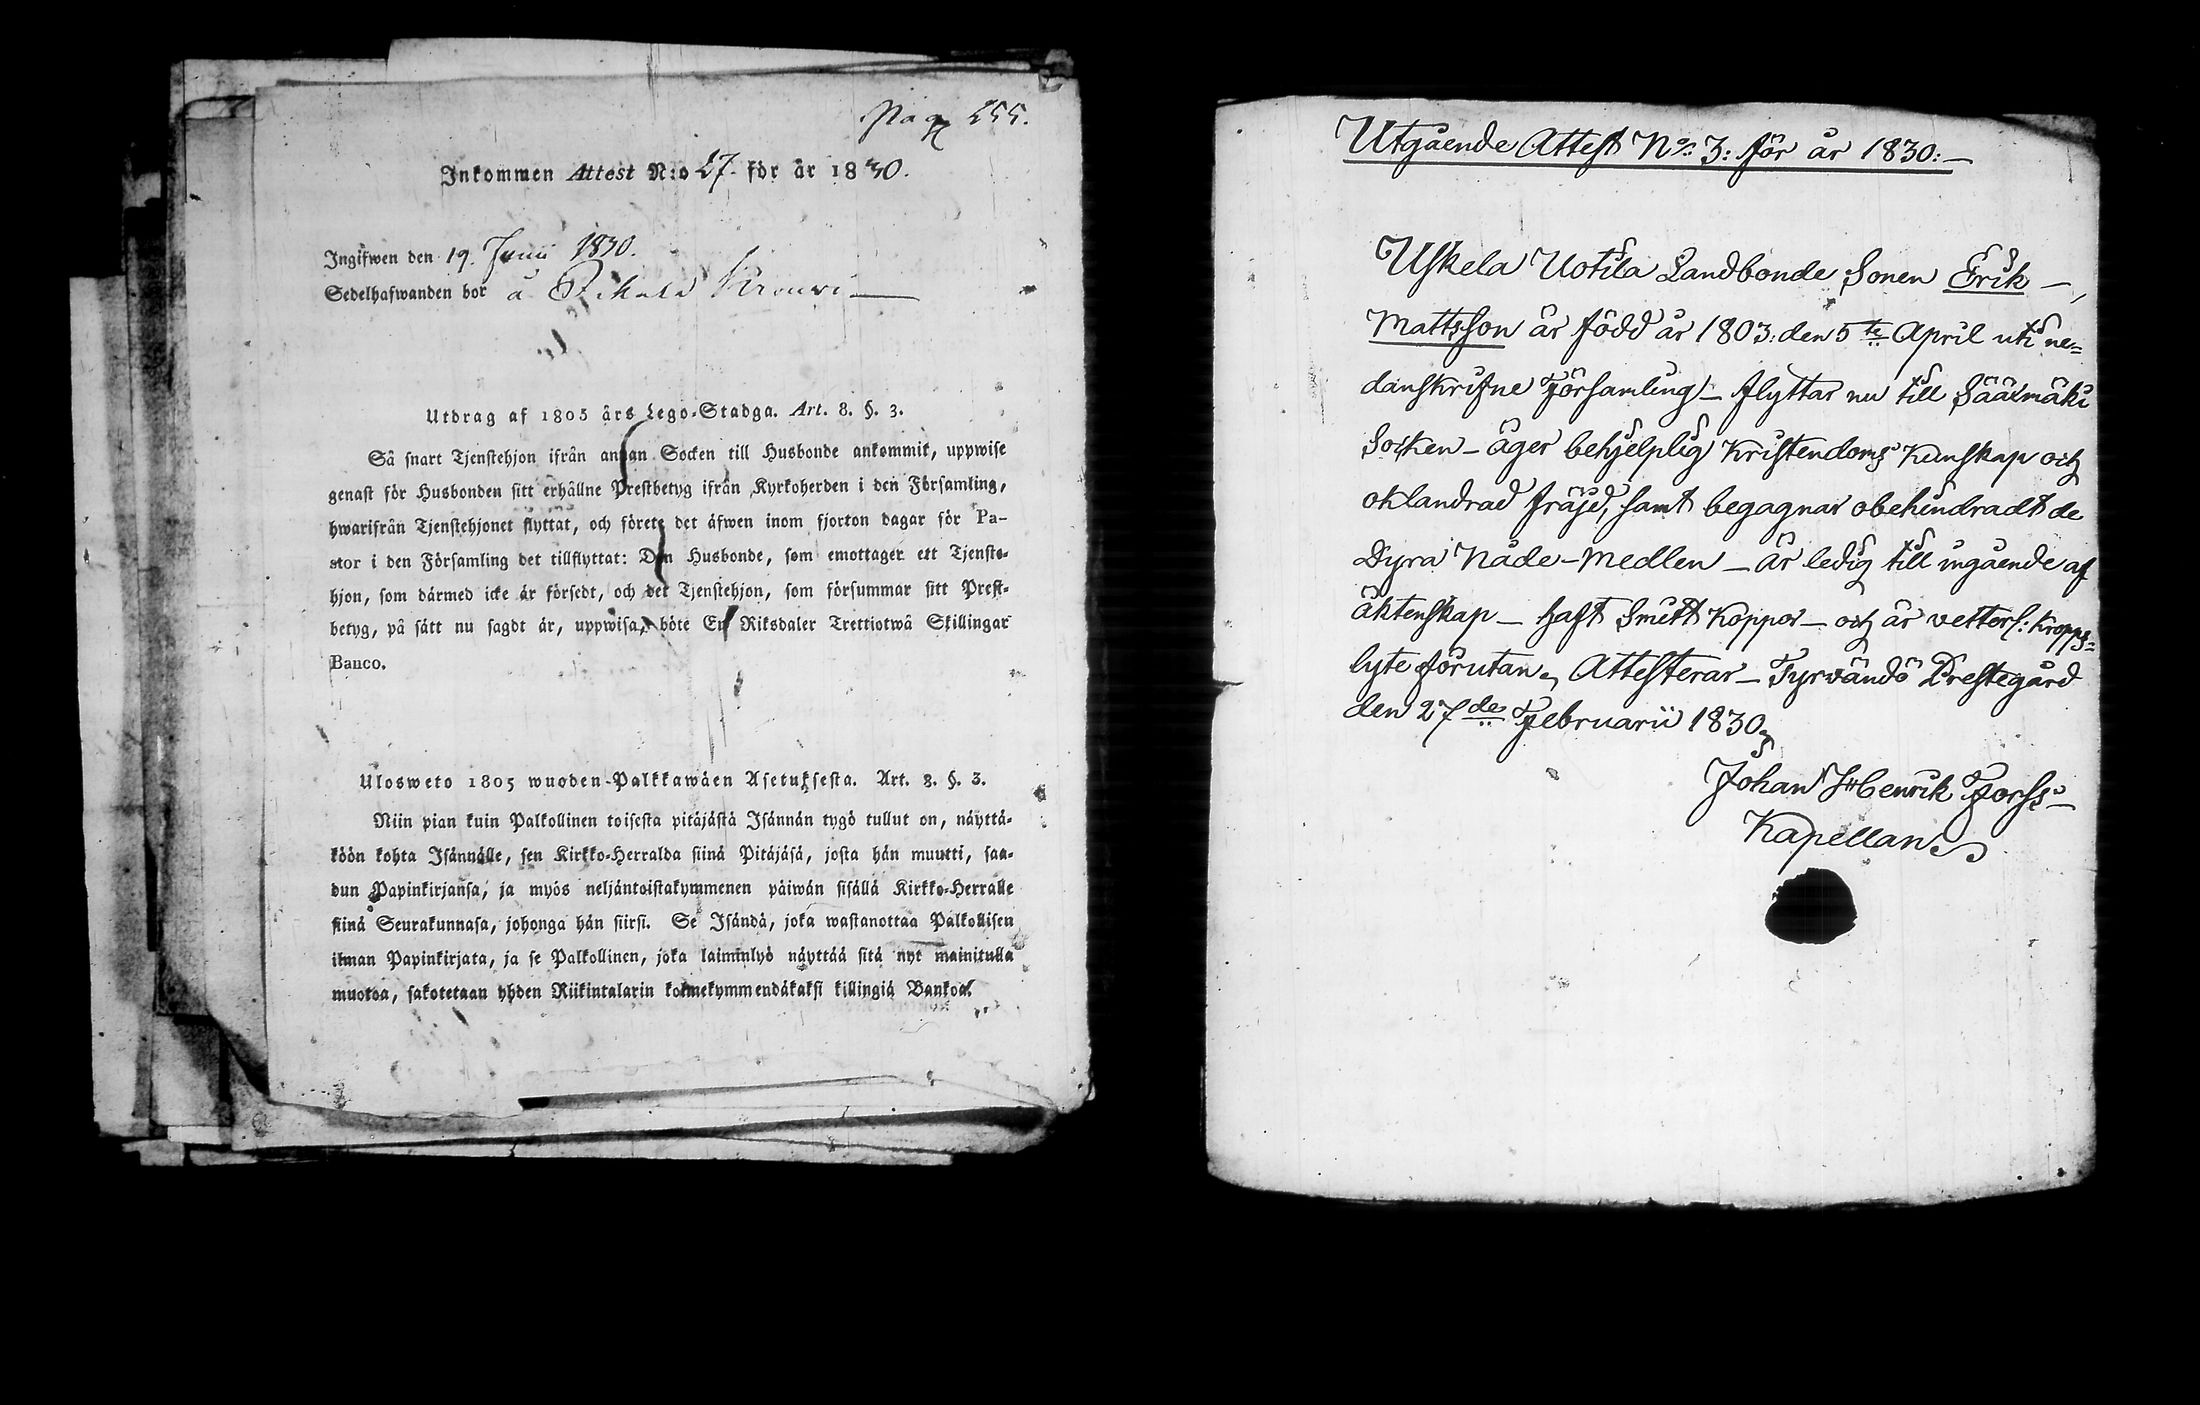 Pag 255.
Inkommen Attest N:o 27. för år 1830.
Ingifwen den 19. Junii 1830.
Sedelhafwanden bor å
Utdrag af 1805 års Lego-Stadga. Art. 8. §. 3.
Så snart Tjenstehjon ifrån annan Socken till Husbonde ankommit, uppwise
genast för Husbonden sitt erhållne Prestbetyg ifrån Kyrkoherden i den Församling,
hwarifrån Tjenstehjonet flyttat, och förete det äfwen inom fjorton dagar för Pa-
stor i den Församling det tillflyttat: Den Husbonde, som emottager ett Tjenste-
hjon, som därmed icke är försedt, och det Tjenstehjon, som försummar sitt Prest-
betyg, på sätt nu sagdt är, uppwisa, böte En Riksdaler Trettiotwå Skillingar
Banco.
Ulosweto 1805 wuoden Palkkawäen Asetuksesta. Art. 8. §. 3.
Niin pian kuin Palkollinen toisesta pitäjästä Isännän tygö tullut on, näyttä-
köön kohta Isännälle, sen Kirkko-Herralda siinä Pitäjäsä, josta hän muutti, saa-
dun Papinkirjansa, ja myös neljäntoistakymmenen päiwän sisällä Kirkko-Herralle
siinä Seurakunnasa, johonga hän siirsi. Se Isändä, joka wastanottaa Palkollisen
ilman Papinkirjata, ja se Palkollinen, joka laiminlyö näyttää sitä nyt mainitulla
muotoa, sakotetaan yhden Riikintalarin kolmekymmendäkaksi killingiä Bankoa.
Utgående Attest No 3: för år 1830:—
Uskela Uotila Landbonde Sonen Erik —
Mattsson är född år 1803: den 5te April uti ne=
danskrifne Församling — flyttar nu till Sääxmäki
Socken — äger behjelplig Kristendoms Kunskap och
oklandrad fräjd, samt begagnar obehindradt de
Dyra Nåde-Medlen — är ledig till ingående af
äktenskap — haft Smitt Koppor — och är vetterl: Kropps=
lyte förutan, Attesterar — Tyrvändö Prestegård
den 27de Februarii 1830,
Johan Henrik Forss —
Kapellan